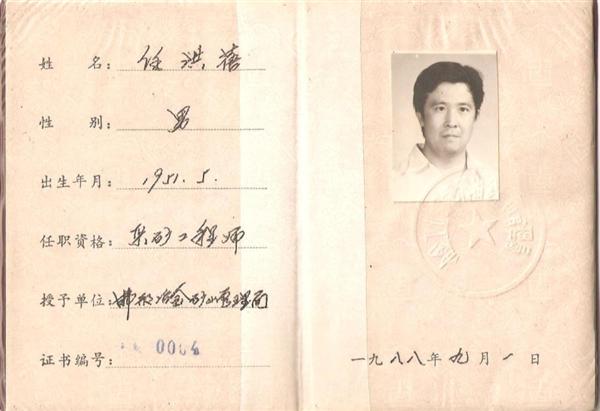 姓 名: 任洪禧
性 别: 男
出生年月: 1951.5.
任职资格: 采矿工程师
授予单位: 冶金矿山管理局
证书编号: 0004
一九八八年九月一日